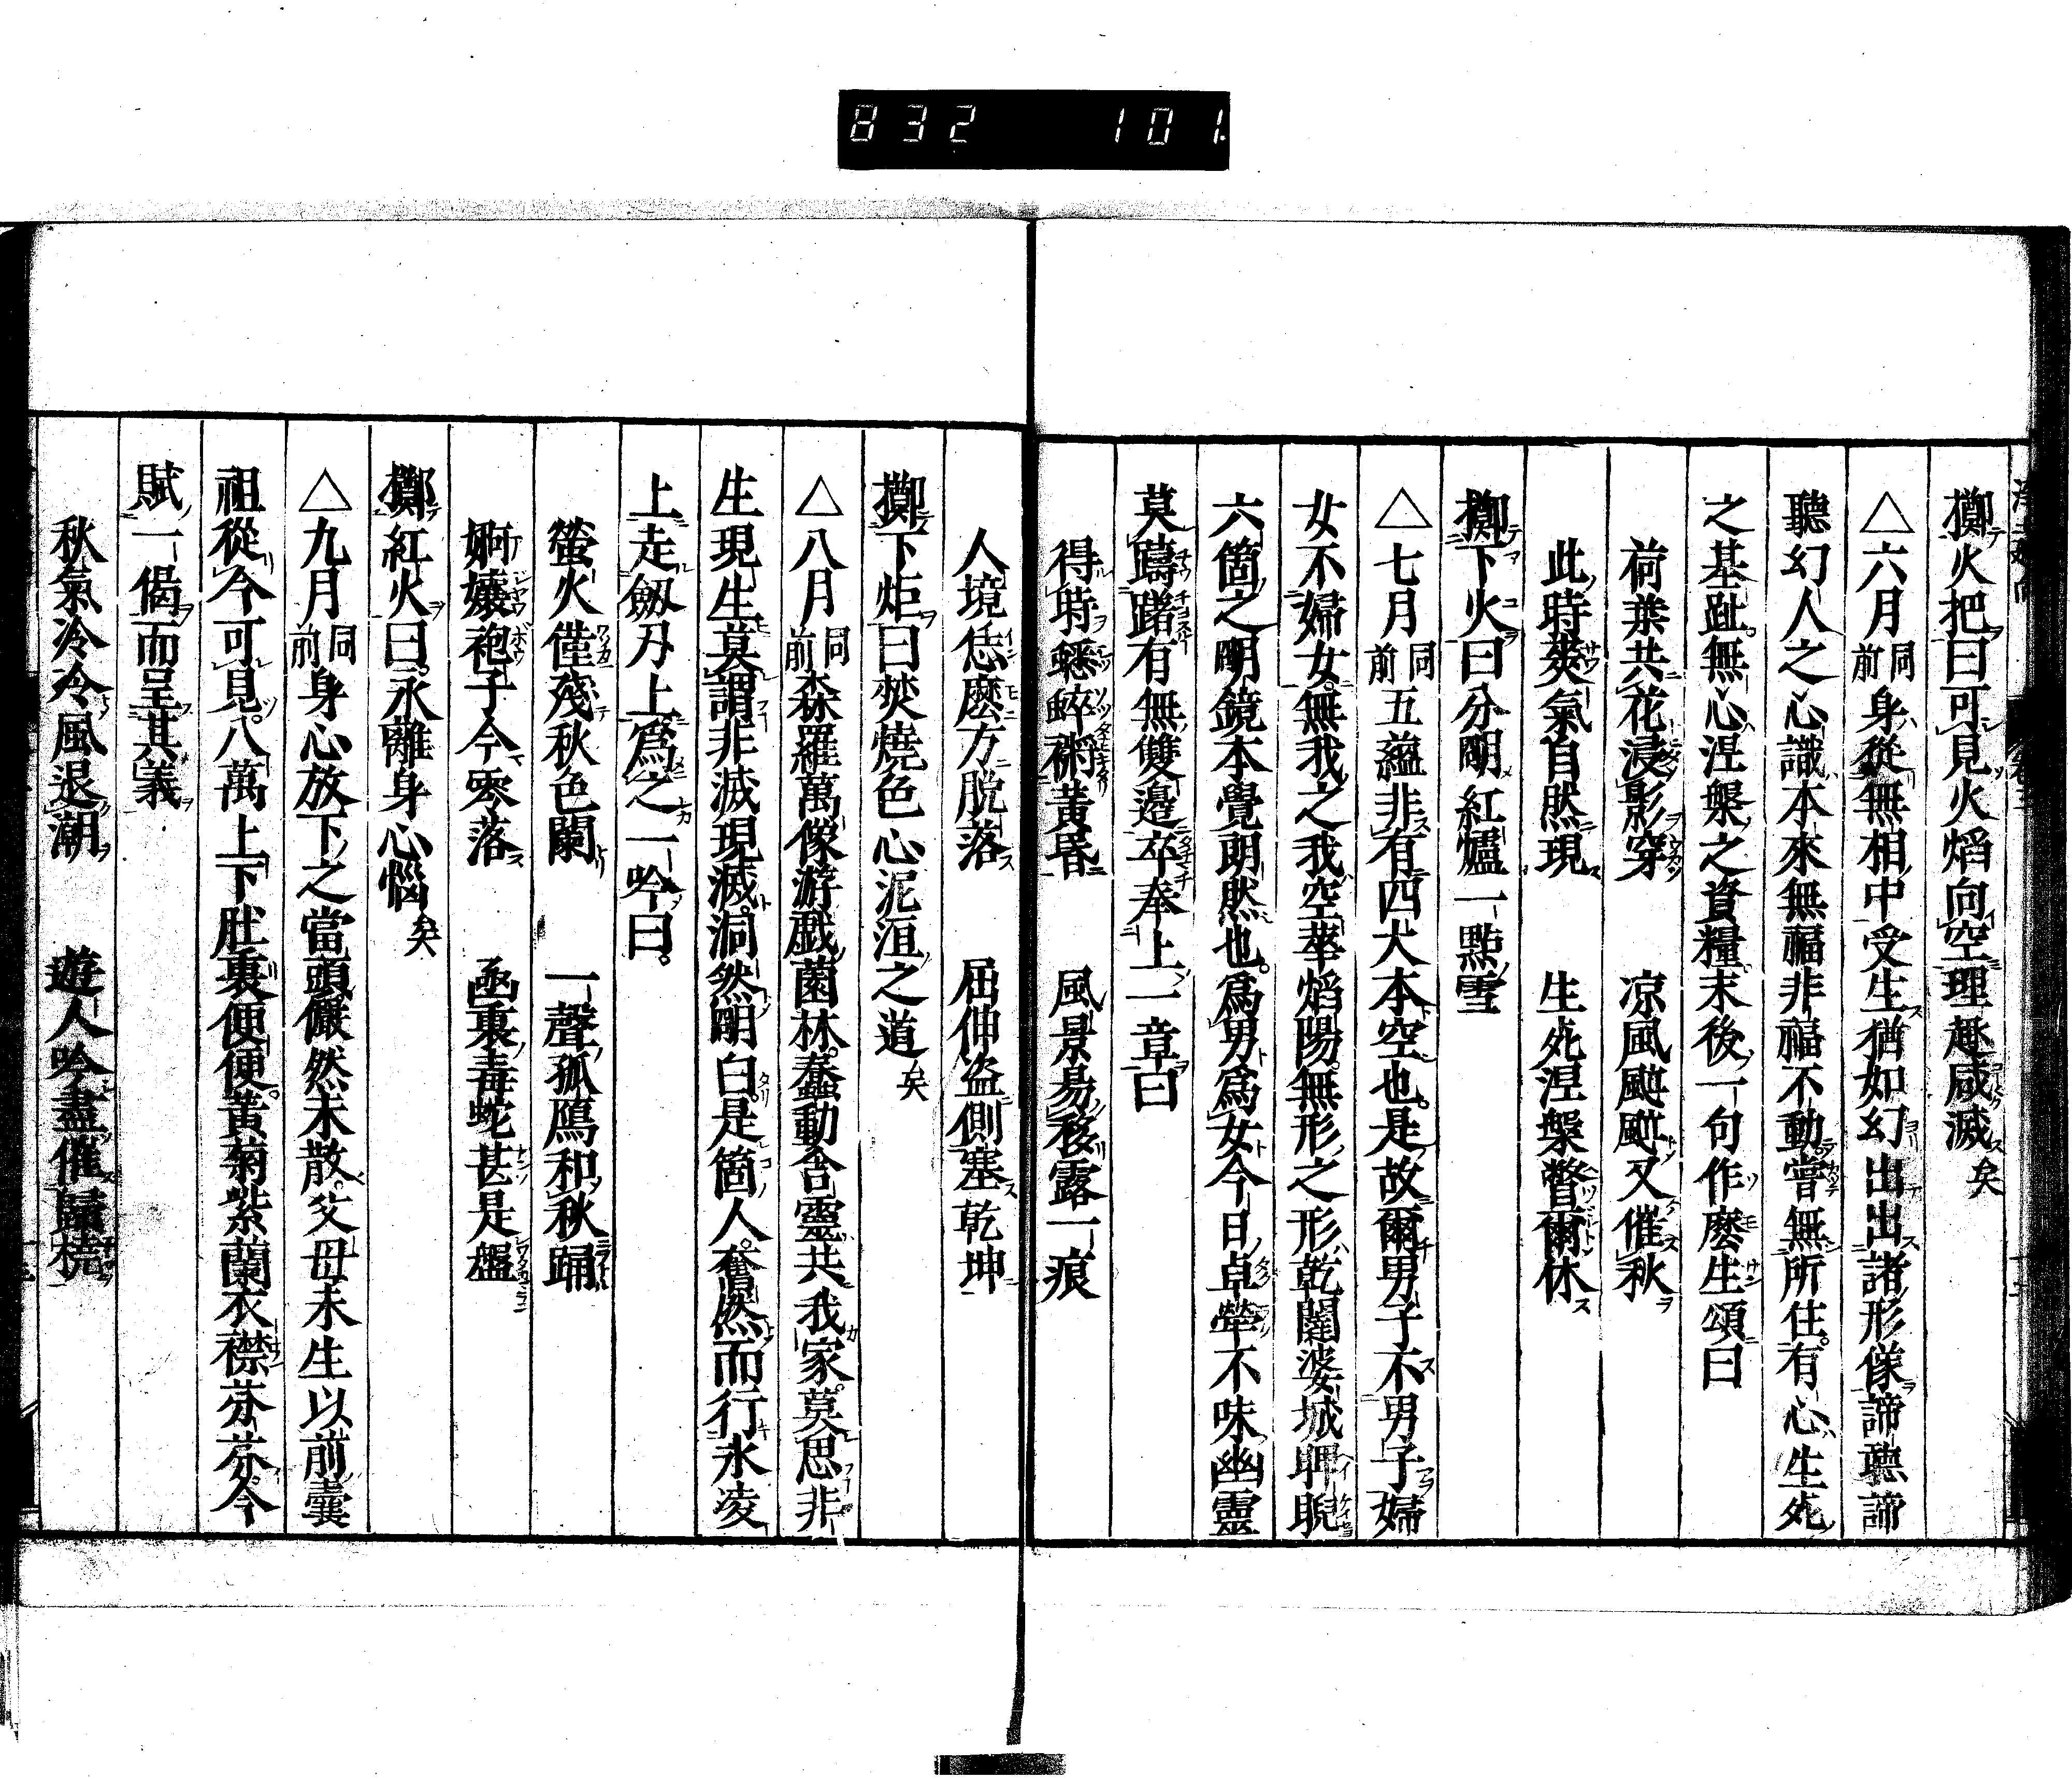 832 101
擲火把曰可見火焰向空理趣咸滅矣
△六月同前身從無相中受生猶如幻出出諸形像諦聽諦
聽幻人之心識本來無福非福不動嘗無所住有心生死
之基趾無心涅槃之資糧末後一句作麽生頌曰
荷葉共花浸影穿 凉風颭颭又催秋
此時爽氣自然現 生死涅槃瞥爾休
擲下火曰分明紅爐一點雪
△七月同前五蘊非有四大本空也是故爾男子不男子婦
女不婦女無我之我空華焰陽無形之形乾闥婆城睥睨
六箇之明鏡本覺朗然也爲男爲女今日卓犖不昧幽靈
莫躊躇有無雙邊卒奉上一章曰
得時蟋蟀褵黃昏 風景易移露一痕
人境恁麽方脱落 屈伸盗側塞乾坤
擲下炬曰焚燒色心泥洹之道矣
△八月同前森羅萬像游戲薗林蠢動含靈共我家莫思非
生現生莫謂非滅現滅洞然明白是箇人奮然而行氷凌
上走劔刃上爲之一吟曰
螢火僅殘秋色闌 一聲孤鴈和秋踊
婀孃袍子今零落 凾裏毒蛇甚是盤
擲紅火曰永離身心惱矣
△九月同前身心放下之當頭儼然未散父母未生以前囊
祖從今可見八萬上下肚裏便便黃菊紫蘭衣襟芬芬今
賦一偈而呈其義
秋氣冷冷風退潮 遊人吟盡催歸橈